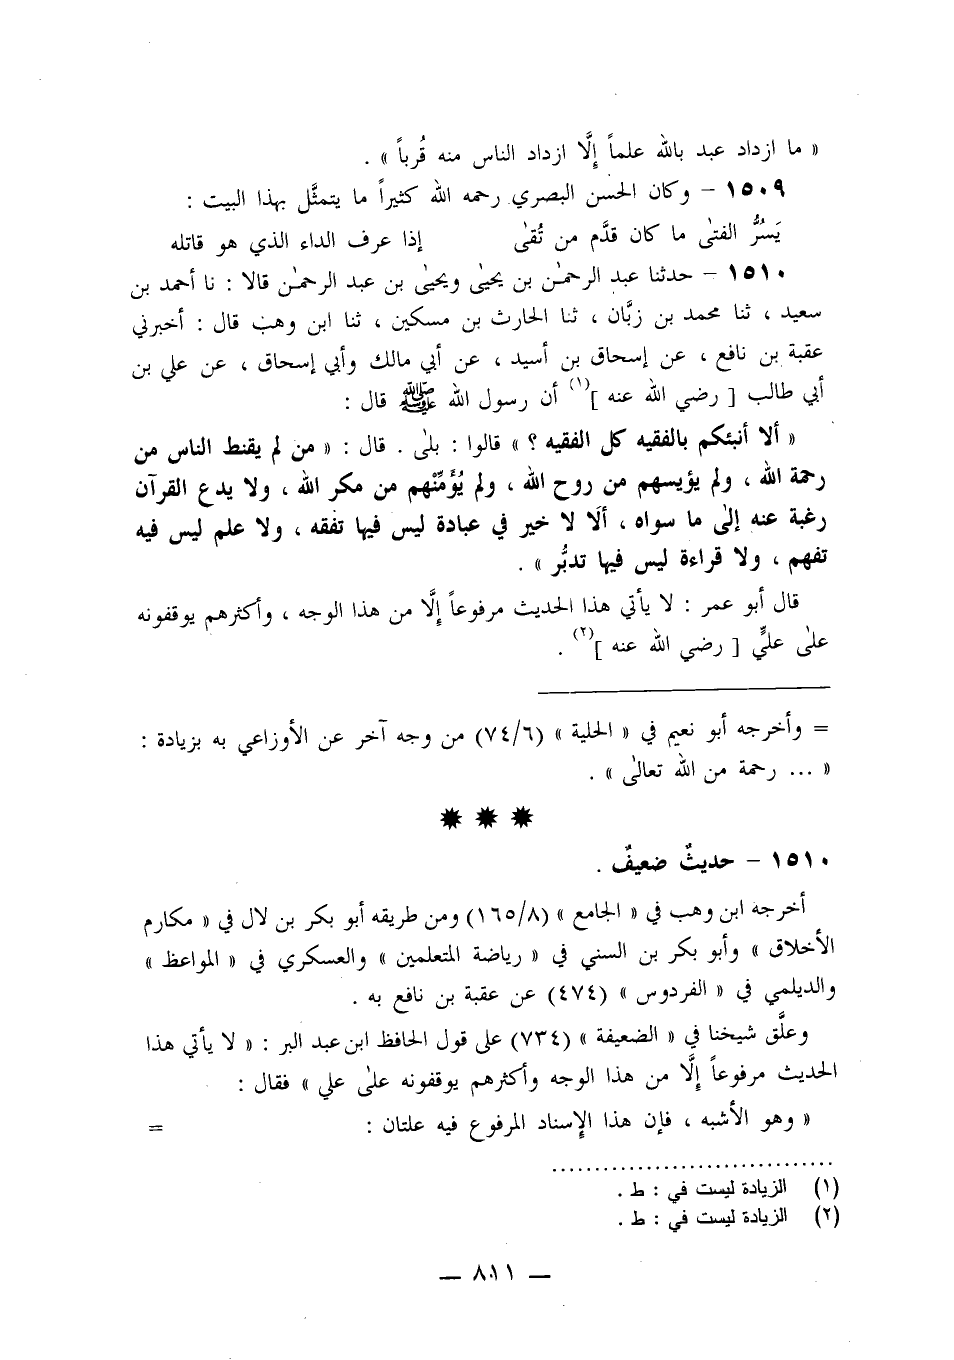 « ما ازداد عبد بالله علماً إِلَّا ازداد الناس منه قُرباً » .
١٥٠٩ – وكان الحسن البصري رحمه الله كثيراً ما يتمثَّل بهذا البيت :
يَسُرُّ الفتىٰ ما كان قدَّم من تُقىٰ إذا عرف الداء الذي هو قاتله
١٥١٠ – حدثنا عبد الرحمٰن بن يحيىٰ ويحيىٰ بن عبد الرحمٰن قالا : نا أحمد بن
سعيد ، ثنا محمد بن زبَّان ، ثنا الحارث بن مسكين ، ثنا ابن وهب قال : أخبرني
عقبة بن نافع ، عن إسحاق بن أسيد ، عن أبي مالك وأبي إسحاق ، عن علي بن
أبي طالب [ رضي الله عنه ](١) أن رسول الله ﷺ قال :
« ألا أنبئكم بالفقيه كل الفقيه ؟ » قالوا : بلىٰ . قال : « من لم يقنط الناس من
رحمة الله ، ولم يؤيسهم من روح الله ، ولم يُؤَمِّنْهم من مكر الله ، ولا يدع القرآن
رغبة عنه إلىٰ ما سواه ، ألَا لا خير في عبادة ليس فيها تفقه ، ولا علم ليس فيه
تفهم ، ولا قراءة ليس فيها تدبُّر » .
قال أبو عمر : لا يأتي هذا الحديث مرفوعاً إِلَّا من هذا الوجه ، وأكثرهم يوقفونه
علىٰ عليٍّ [ رضي الله عنه ](٢) .
= وأخرجه أبو نعيم في « الحلية » (٧٤/٦) من وجه آخر عن الأوزاعي به بزيادة :
« ... رحمة من الله تعالىٰ » .
١٥١٠ – حديثٌ ضعيفٌ .
أخرجه ابن وهب في « الجامع » (١٦٥/٨) ومن طريقه أبو بكر بن لال في « مكارم
الأخلاق » وأبو بكر بن السني في « رياضة المتعلمين » والعسكري في « المواعظ »
والديلمي في « الفردوس » (٤٧٤) عن عقبة بن نافع به .
وعلَّق شيخنا في « الضعيفة » (٧٣٤) على قول الحافظ ابن عبد البر : « لا يأتي هذا
الحديث مرفوعاً إِلَّا من هذا الوجه وأكثرهم يوقفونه علىٰ علي » فقال :
« وهو الأشبه ، فإن هذا الإسناد المرفوع فيه علتان : =
(١) الزيادة ليست في : ط .
(٢) الزيادة ليست في : ط .
— ٨١١ —